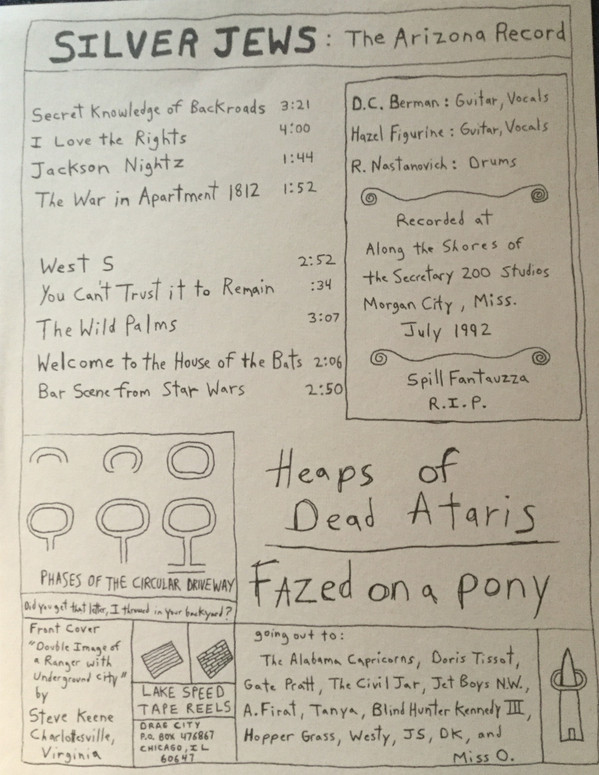 SILVER JEWS: The Arizona Record
Secret Knowledge of Backroads 3:21
I Love the Rights 4:00
Jackson Nightz 1:44
The War in Apartment 1812 1:52
West S 2:52
You Can't Trust it to Remain :34
The Wild Palms 3:07
Welcome to the House of the Bats 2:06
Bar Scene from Star Wars 2:50
D.C. Berman: Guitar, Vocals
Hazel Figurine: Guitar, Vocals
R. Nastanovich: Drums
Recorded at
Along the Shores of
the Secretary 200 Studios
Morgan City, Miss.
July 1992
Spill Fantauzza
R.I.P.
PHASES OF THE CIRCULAR DRIVEWAY
Heaps of
Dead Ataris
FAZed on a pony
Did you get that letter, I threw in your backyard?
Front Cover
"Double Image of
a Ranger with
Underground City"
by
Steve Keene
Charlottesville,
Virginia
LAKE SPEED
TAPE REELS
DRAG CITY
P.O. BOX 476867
CHICAGO, IL
60647
going out to:
The Alabama Capricorns, Doris Tissot,
Gate Pratt, The Civil Jar, Jet Boys N.W.,
A. Firat, Tanya, Blind Hunter Kennedy III,
Hopper Grass, Westy, JS, DK, and
Miss O.